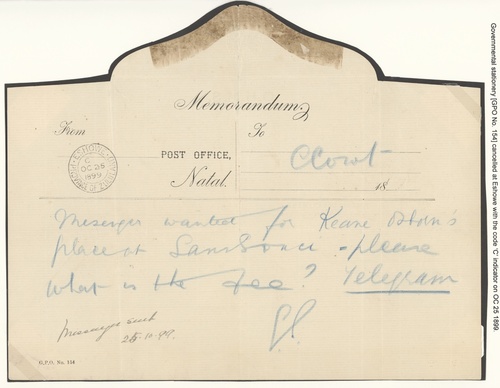 Memorandum
From
To
ESHOWE
C
OC 25
1899
POST OFFICE,
Natal.
CCourt
18
Messenger wanted for Keane Osborn's
place at Sans Souci - please
what is the fee? Telegram
Messenger sent
25.10.99.
G.P.O. No. 154
Governmental stationery [GPO No. 154] cancelled at Eshowe with the code 'C' indicator on OC 25 1899.